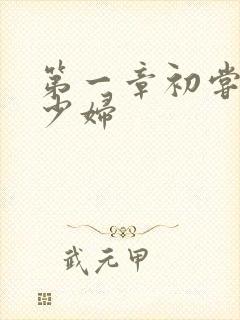 第一章初尝
少婦
武元甲